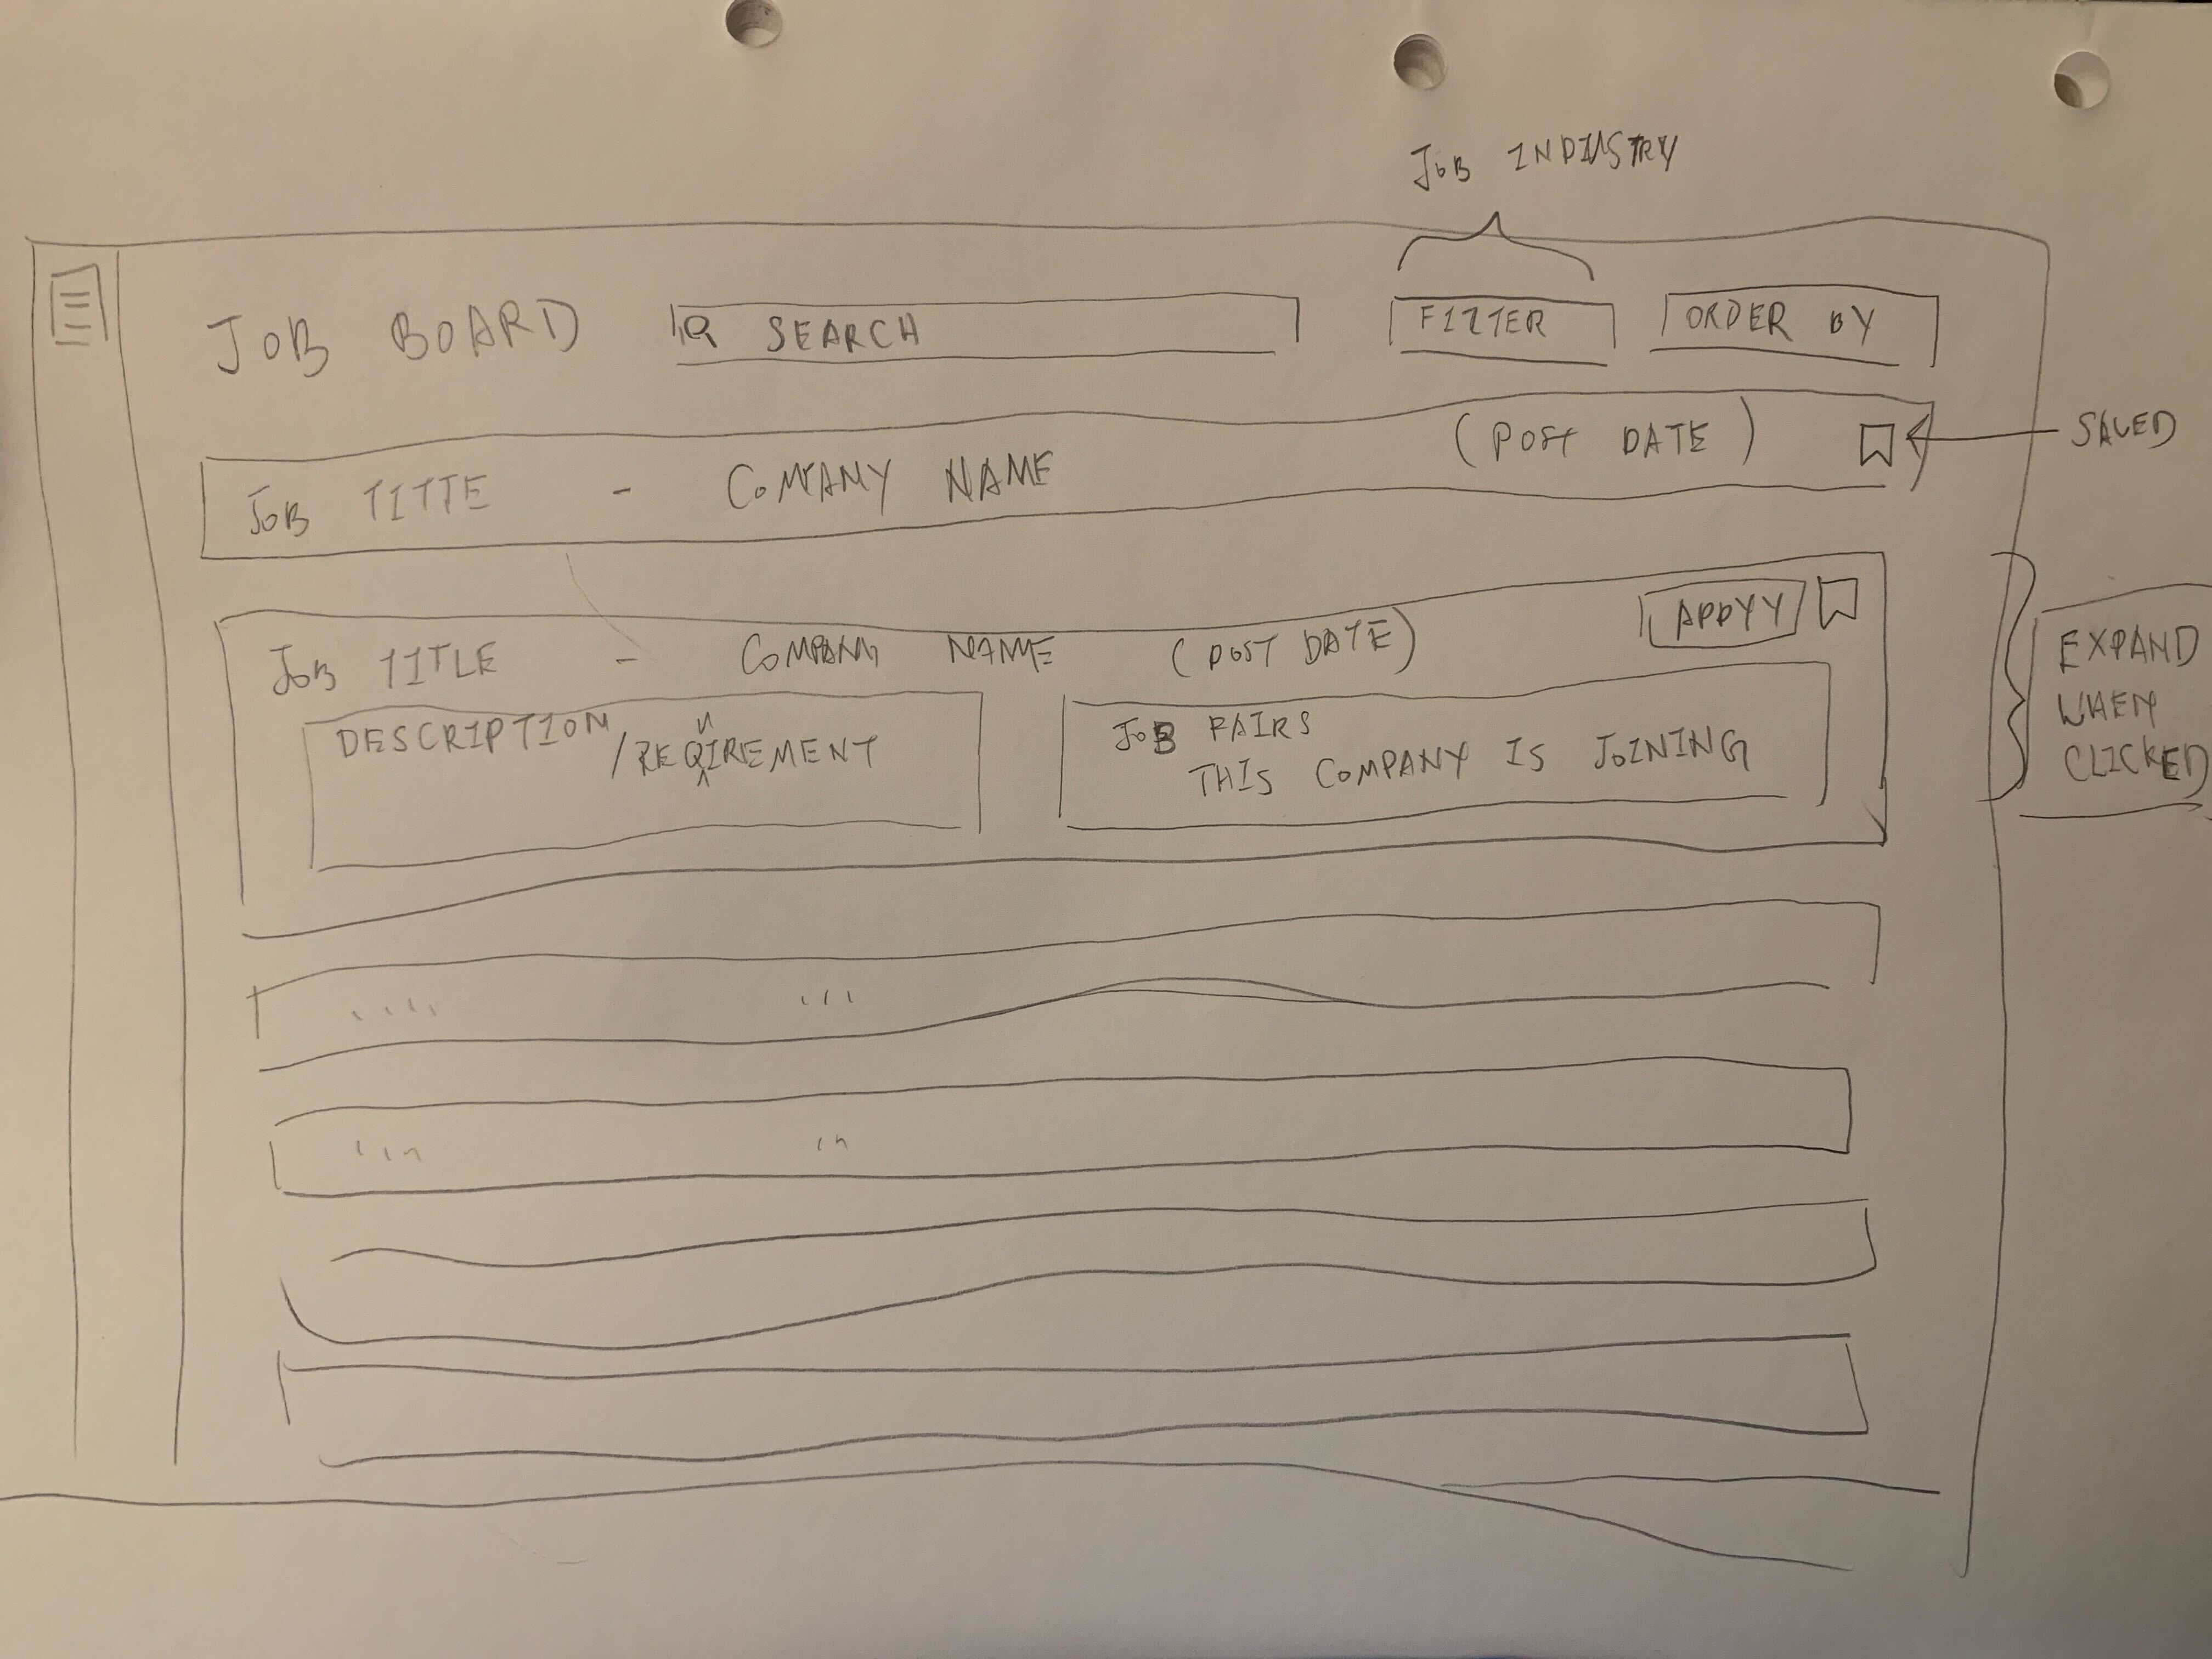 JOB INDUSTRY
JOB BOARD
SEARCH
FILTER
ORDER BY
JOB TITTE - COMPANY NAME (POST DATE)
SAVED
JOB TITLE - COMPANG NAME (POST DATE)
APPYY
DESCRIPTION
/REQUIREMENT
JOB FAIRS
THIS COMPANY IS JOINING
EXPAND
WHEN
CLICKED